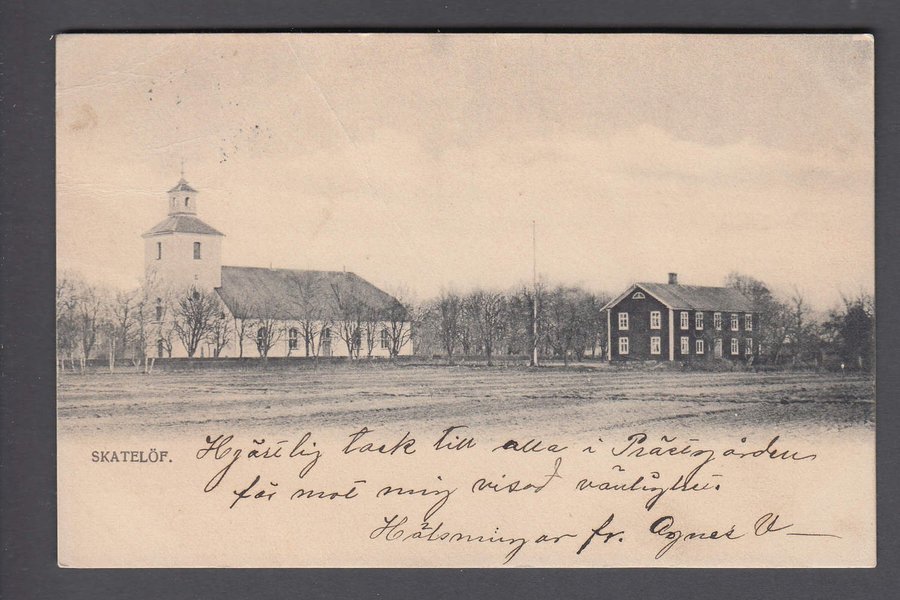 SKATELÖF.
Hjärtlig tack till alla i Prästgården
för mot mig visad vänlighet.
Hälsningar fr. Agnes V